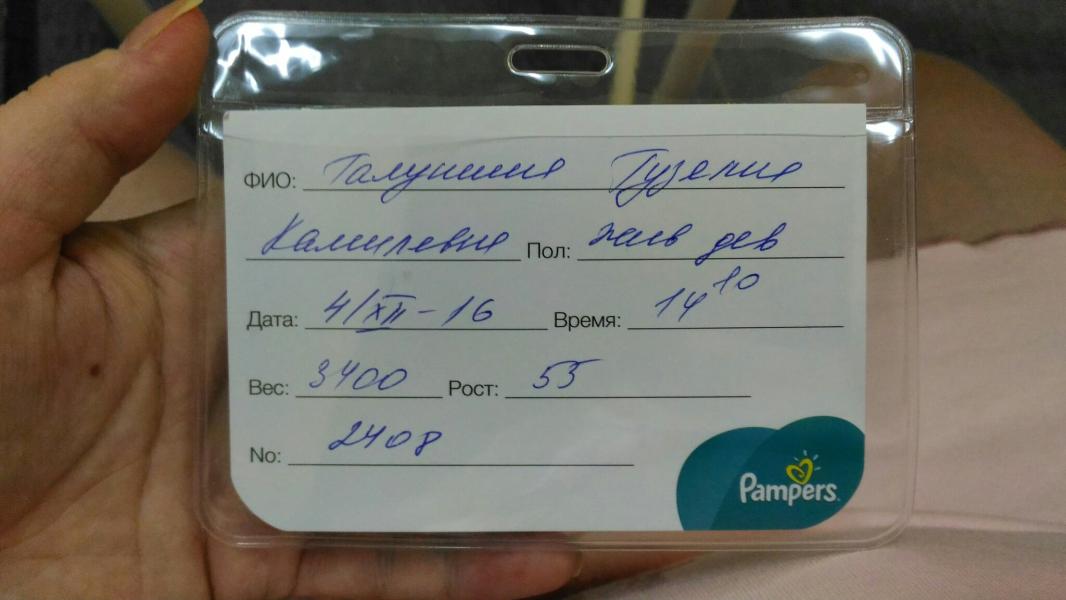 ФИО: Галушина Гузелия
Камилевна Пол: жив дев
Дата: 4/XII-16 Время: 14 10
Вес: 3400 Рост: 55
No: 2408
Pampers